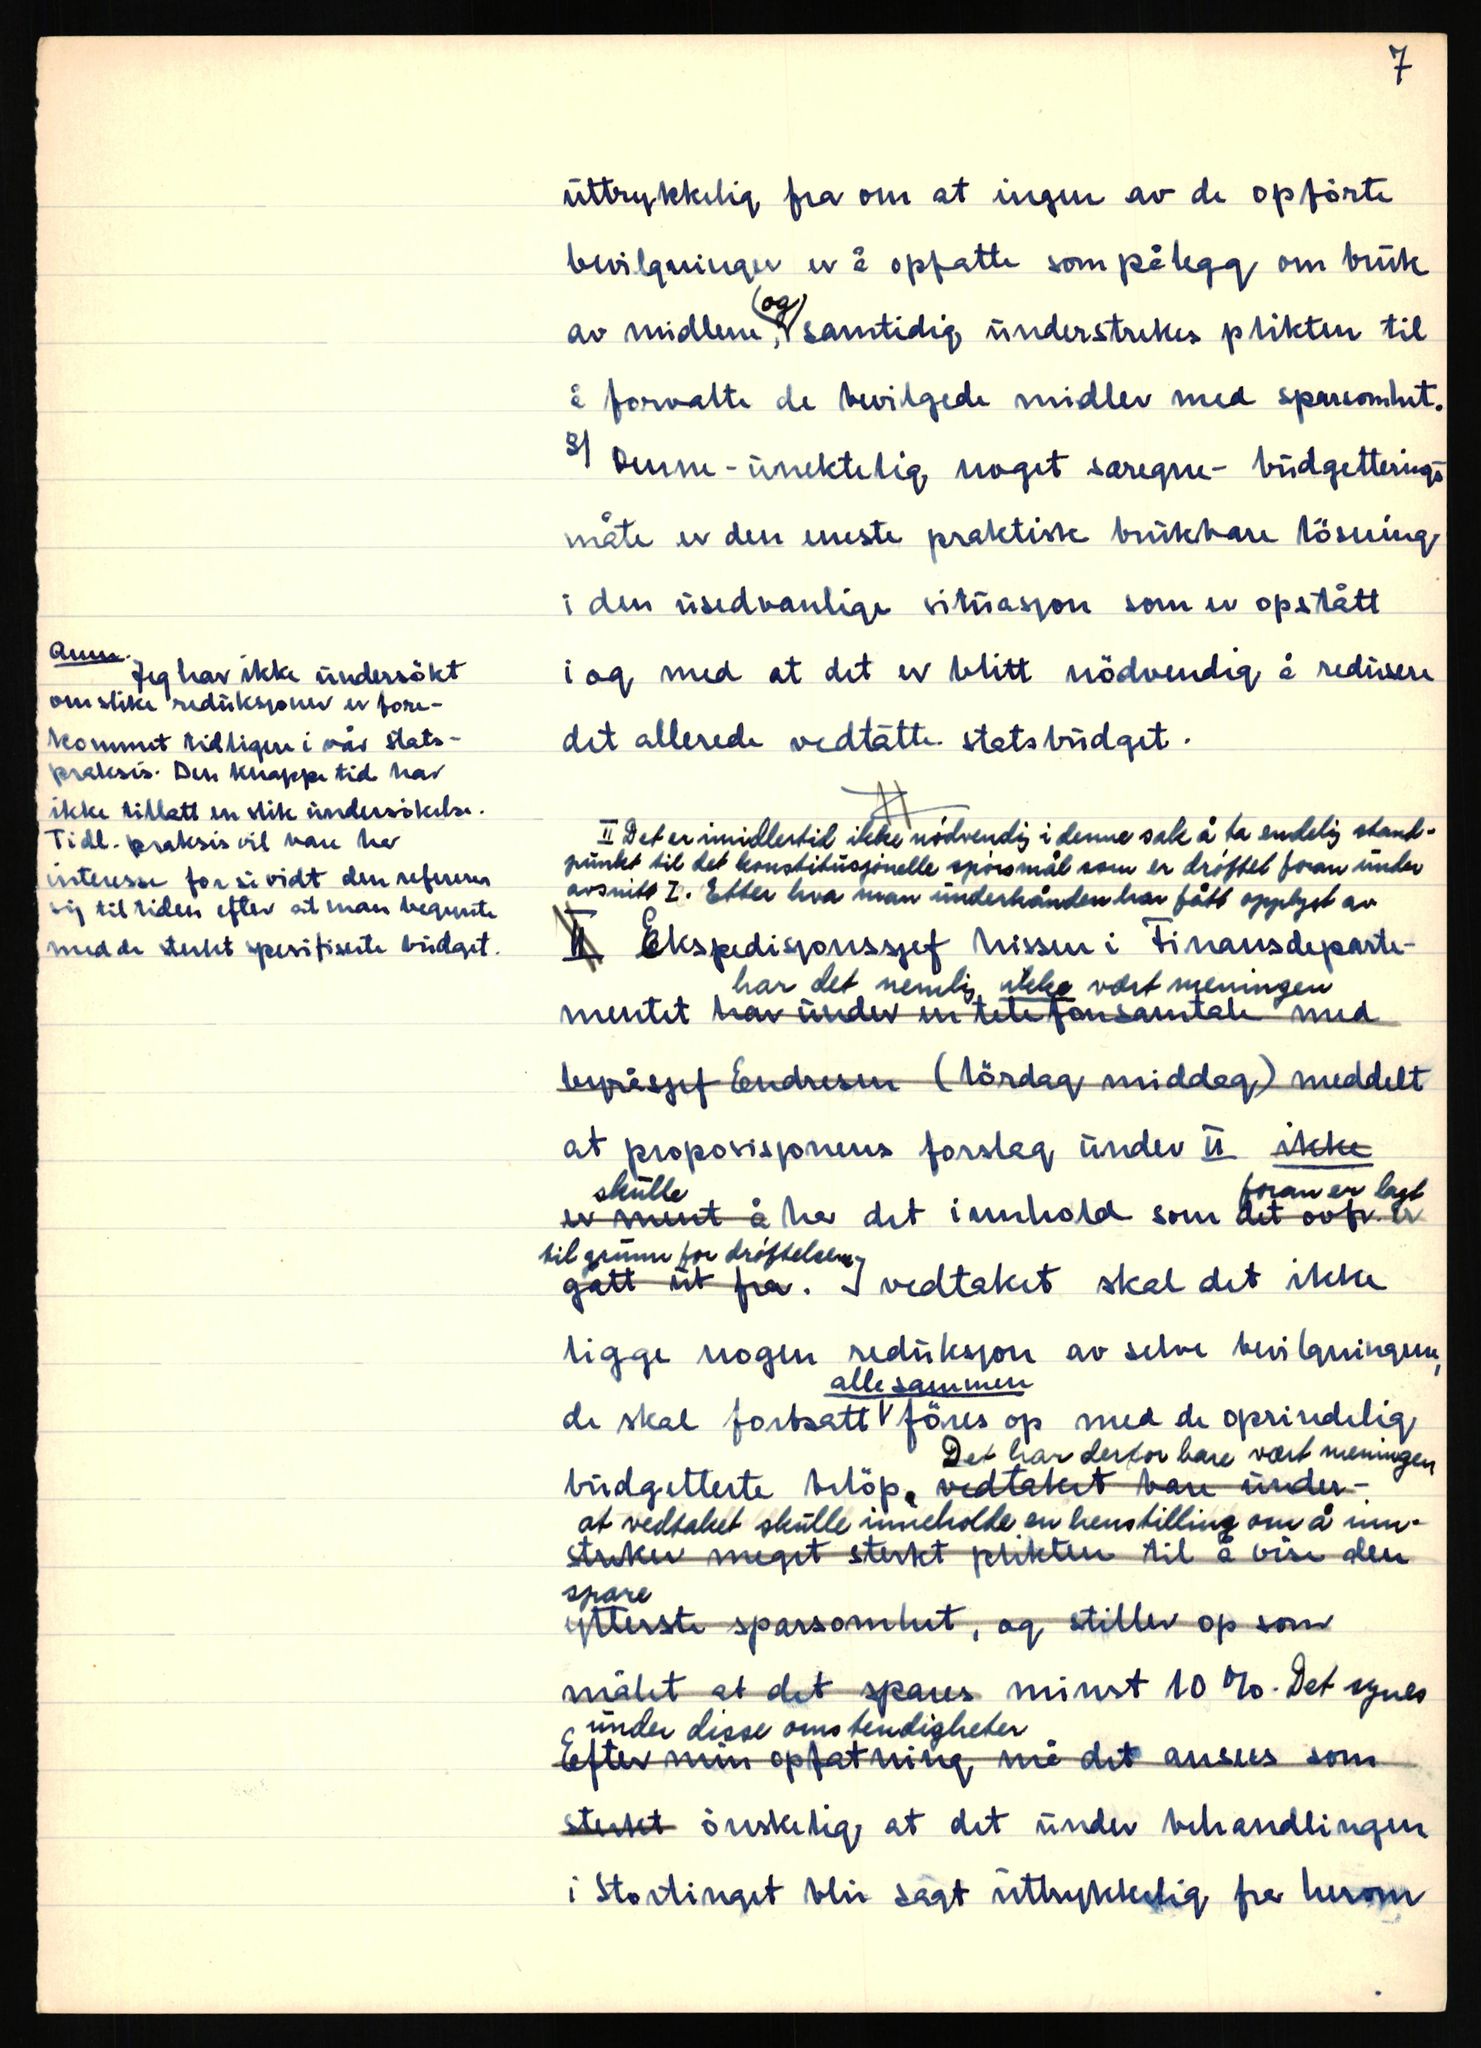 7
uttrykkelig fra om at ingen av de opførte
bevilgninger er å opfatte som pålegg om bruk
(og)
av midlene, samtidig understrekes plikten til
å forvalte de bevilgede midler med sparsomhet.
Denne - unektelig noget særegne - budgetterings-
måte er den eneste praktisk brukbare løsning
i den usedvanlige situasjon som er opstått
i og med at det er blitt nödvendig å redusere
det allerede vedtatte statsbudget.
Anm.
Jeg har ikke undersøkt
om slike reduksjoner er fore-
kommet tidligere i vår stats-
praksis. Den knappe tid har
ikke tillatt en slik undersøkelse.
Tidl. praksis vil bare ha
interesse for så vidt den refererer
sig til tiden efter at man begynte
med de sterkt spesifiserte budget.
II Det er imidlertid ikke nødvendig i denne sak å ta endelig stand-
punkt til det konstitusjonelle spørsmål som er drøftet foran under
avsnitt I. Etter hva man underhånden har fått opplyst av
II Ekspedisjonssjef Nissen i Finansdeparte-
har det nemlig ikke vært meningen
mentet har under en telefonsamtale med
byråsjef Endresen (lördag middag) meddelt
at proposisjonens forslag under II ikke
skulle foran er lagt
er ment å ha det innhold som det ovfr. er
til grunn for drøftelsen
gått ut fra. I vedtaket skal det ikke
ligge nogen reduksjon av selve bevilgningene,
alle sammen
de skal fortsatt föres op med de oprindelig
Det har derfor bare vært meningen
budgetterte beløp. vedtaket bare under-
at vedtaket skulle inneholde en henstilling om å inn-
streker meget sterkt plikten til å vise den
spare
ytterste sparsomhet, og stiller op som
målet at det spares minst 10 %. Det synes
under disse omstendigheter
Efter min opfatning må det ansees som
sterkt ønskelig at det under behandlingen
i Stortinget blir sagt uttrykkelig fra herom